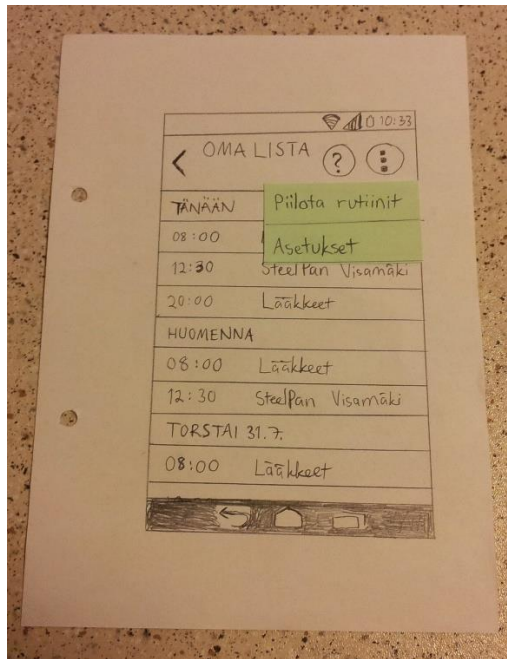 10:33
OMA LISTA ?
TÄNÄÄN Piilota rutiinit
08:00 Asetukset
12:30 SteelPan Visamäki
20:00 Lääkkeet
HUOMENNA
08:00 Lääkkeet
12:30 SteelPan Visamäki
TORSTAI 31.7.
08:00 Lääkkeet